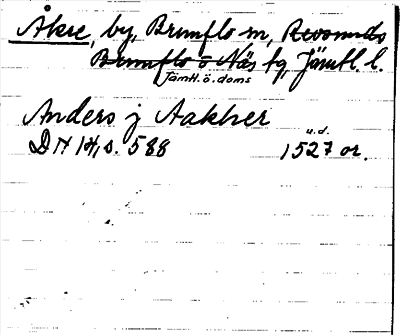 Åkre, by, Brunflo sn, Revsunds
Brunflo o Näs tg, Jämtl. l.
Jämtl. ö. doms
Anders j Aakher
u.d.
DN 14, s. 588 1527 or.